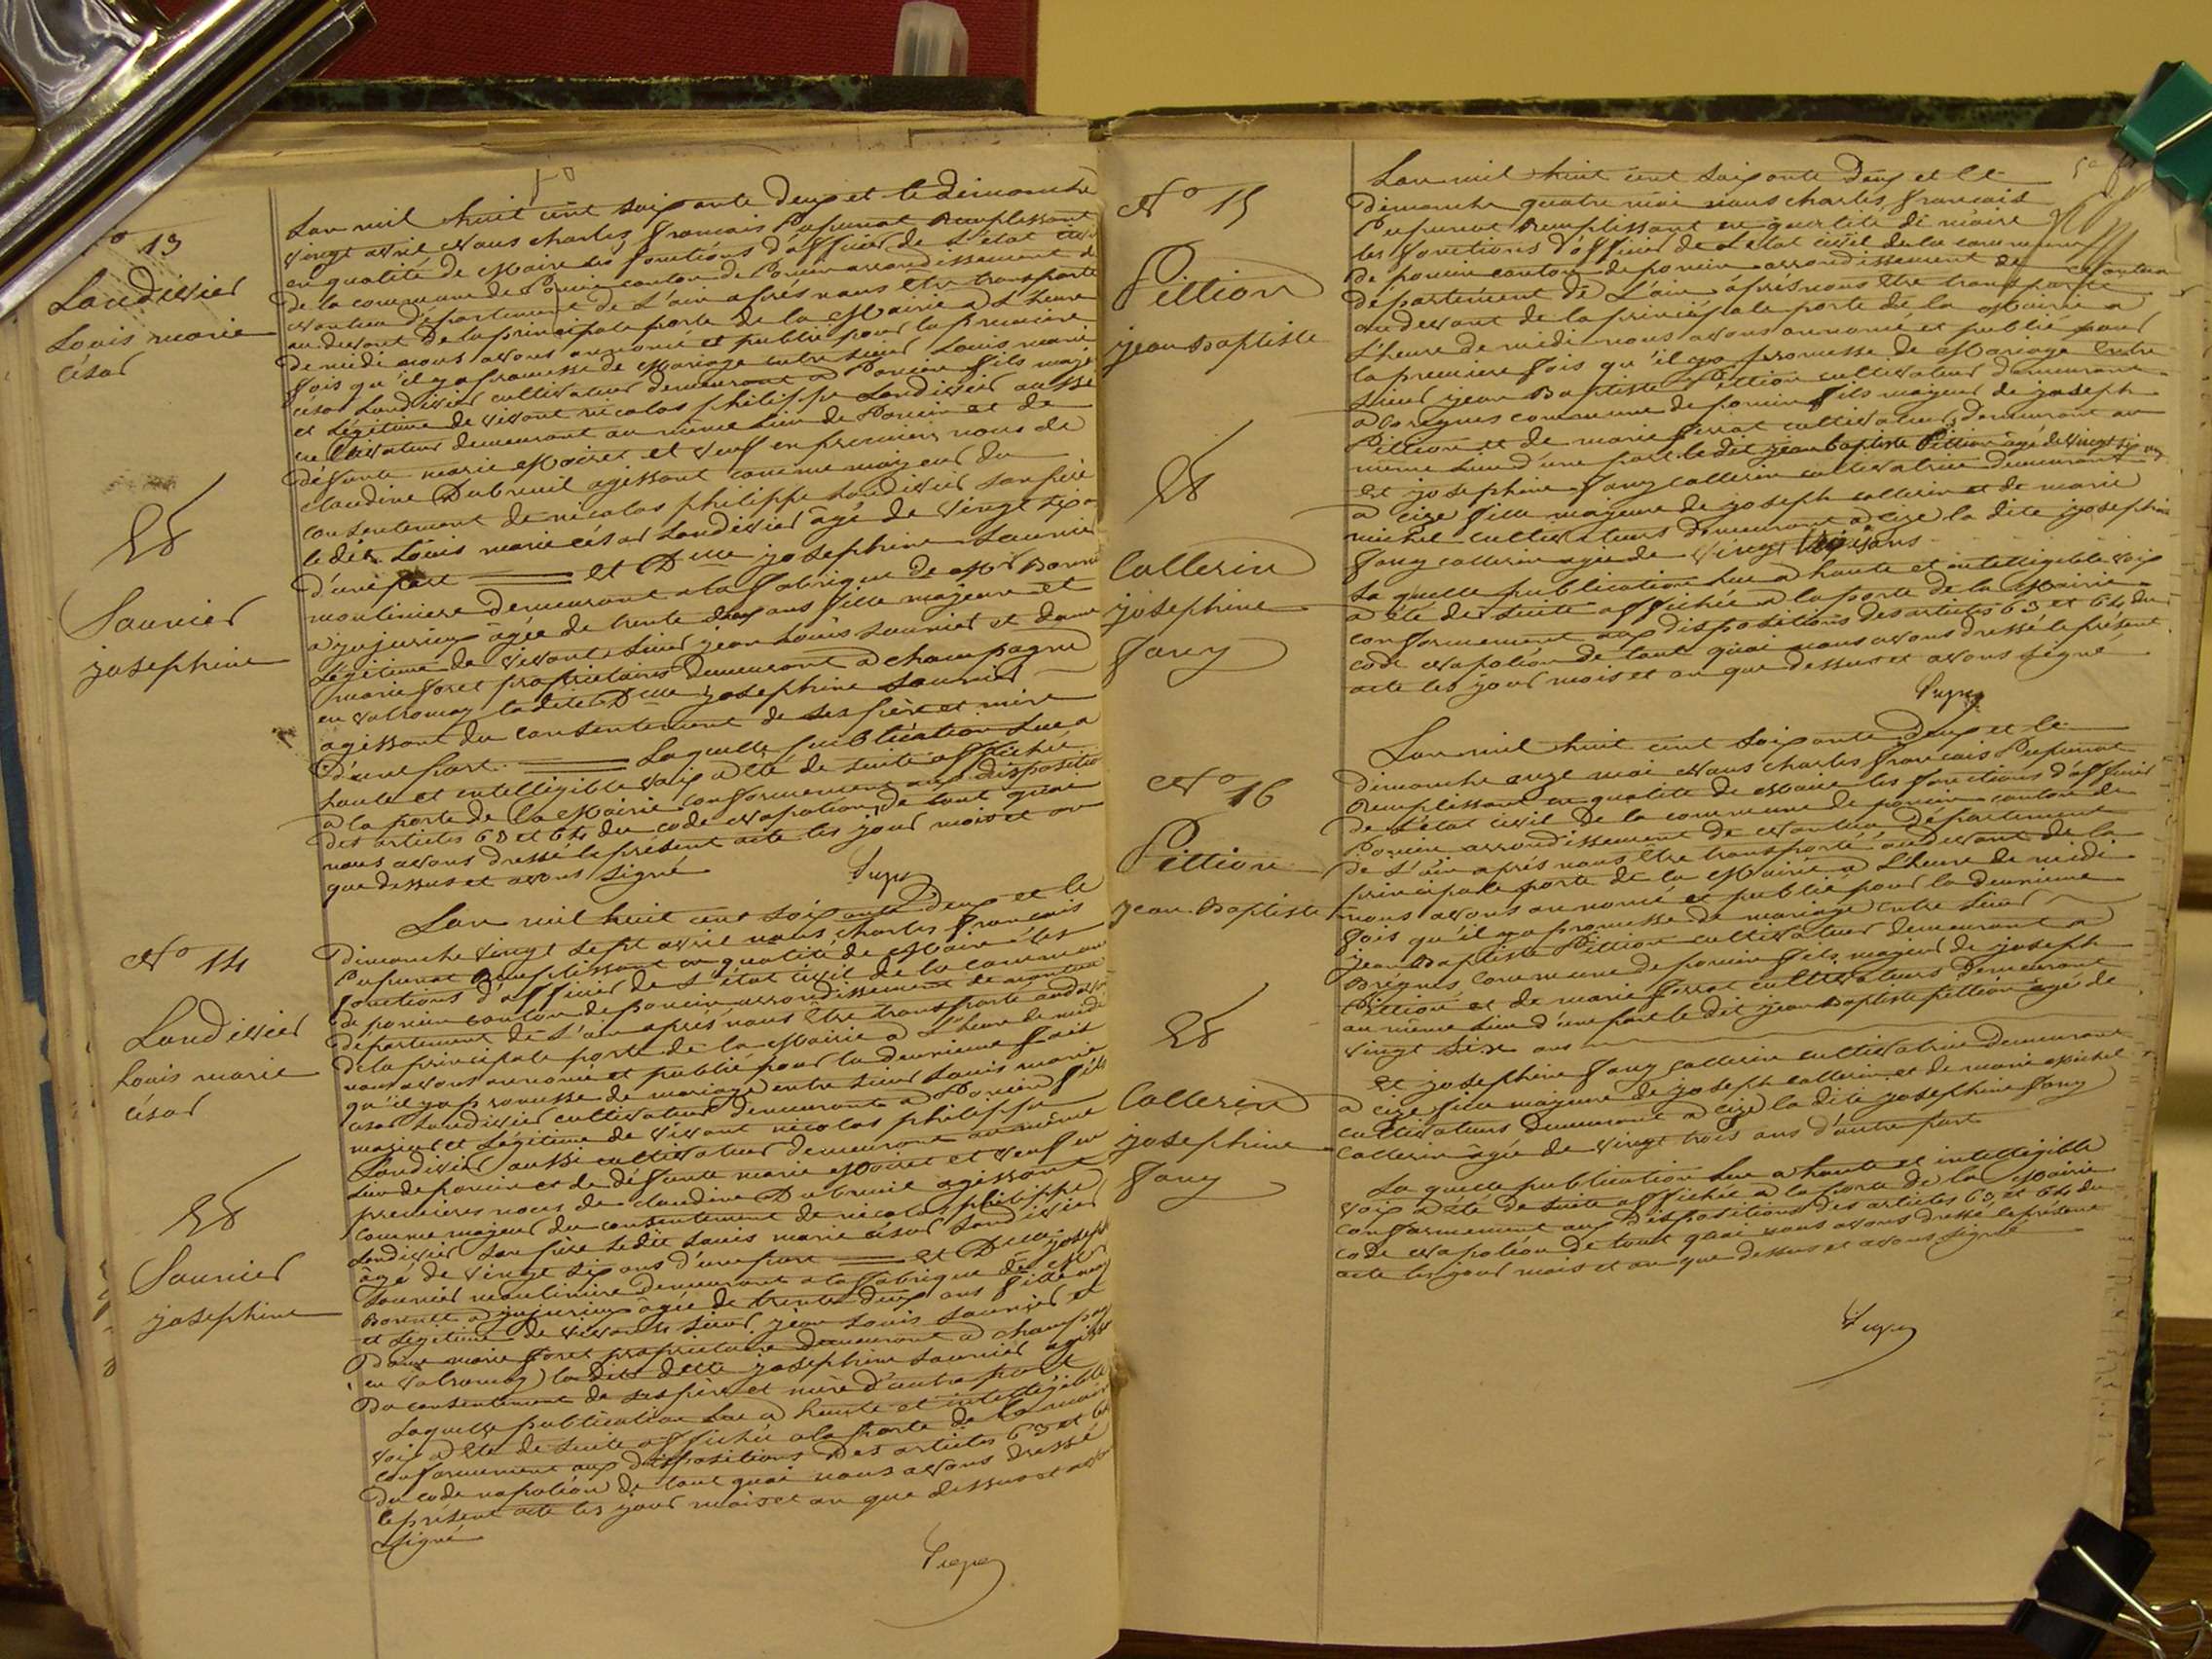 N° 13
Landivier
Louis marie
César
Et
Saunier
josephine
L'an mil huit cent soixante deux et le dimanche
vingt avril Nous charles francois Pupunat Remplissant
en qualité de Maire les fonctions d'officier de L'état civil
de la commune de Poncin canton de Poncin arrondissement de
Nantua departement de L'ain après nous être transporté
au devant de la principale porte de la Mairie a L'heure
de midi nous avons annoncé et publié pour la premiere
fois qu'il y a promesse de Mariage entre sieur Louis marie
césar Landivier cultivateur demeurant a Poncin fils maje
et Légitime de vivant nicolas philippe Landivier aussi
cultivateur demeurant au même lieu de Poncin et de
défunte marie Moiret et veuf en premieres noces de
claudine Dubreuil agissant comme majeur du
consentement de nicolas philippe Landivier son père
le dit Louis marie césar Landivier âgé de vingt six a
d'une part et Dlle josephine Saunier
mouliniere demeurant a la fabrique de Mr Bonnet
a jujurieux âgée de trente deux ans fille majeure et
Légitime de vivants sieur jean Louis Saunier et dame
marie foret propriétaires demeurant a champagne
en valromay ladite Dlle josephine Saunier
agissant du consentement de ses père et mère
d'autre part. Laquelle publication Lue a
haute et intelligible voix a été de suite affichée
a la porte de la Mairie conformement aux dispositio
des articles 63 et 64 du code Napoléon de tout quoi
nous avons dressé le présent acte les jour mois et an
que dessus et avons signé
N° 14
Landivier
Louis marie
césar
Et
Saunier
josephine
L'an mil huit cent soixante deux et le
Dimanche vingt sept avril nous charles francois
Pupunat Remplissant en qualité de Maire les
fonctions d'officier de L'état civil de la commune
de poncin canton de poncin arrondissement de nantua
departement de L'ain après nous être transporté au devan
de la principale porte de la Mairie a L'heure de midi
nous avons annoncé et publié pour la deuxieme fois
qu'il y a promesse de mariage entre sieur Louis marie
césar Landivier cultivateur demeurant a Poncin fils
majeur et Légitime de vivant nicolas philippe
Landivier aussi cultivateur demeurant au même
lieu de poncin et de défunte marie Moiret et veuf en
premieres noces de claudine Dubreuil agissant
comme majeur du consentement de nicolas philippe
Landivier son père le dit Louis marie césar Landivier
âgé de vingt six ans d'une part et Dlle joseph
Saunier mouliniere demeurant a la fabrique de Mr
Bonnet a jujurieux âgée de trente deux ans fille maj
et Légitime de vivants sieur jean Louis Saunier et
Dame marie foret propriétaire demeurant a champag
en valromay la dite delle josephine Saunier agiss
Du consentement de ses père et mère d'autre part
Laquelle publication Lue a haute et intelligible
voix a été de suite affichée a la porte de la mair
conformement aux dispositions des articles 63 et 64
du code napoléon de tout quoi nous avons dressé
le présent acte les jour mois et an que dessus et avon
signé
N° 15
Pittion
jean Baptiste
Et
Callerin
josephine
fany
L'an mil huit cent soixante deux et le
Dimanche quatre mai nous charles francois
Pupunat Remplissant en qualité de maire
les fonctions d'officier de L'état civil de la commune
de poncin canton de poncin arrondissement de Nantua
département de L'ain après nous être transporté
au devant de la principale porte de la Mairie a
L'heure de midi nous avons annoncé et publié pour
la premiere fois qu'il y a promesse de Mariage entre
sieur jean Baptiste Pittion cultivateur demeurant
a Bregnes commune de poncin fils majeur de joseph
Pittion et de marie ferrat cultivateurs demeurant au
même lieu d'une part le dit jean Baptiste Pittion âgé de vingt six ans
Et josephine fany callerin cultivatrice demeurant
a cize fille majeure de joseph callerin et de marie
michel cultivateurs demeurant a cize la dite josephine
fany callerin âgée de vingt trois ans
La quelle publication Lue a haute et intelligible voix
a été de suite affichée a la porte de la Mairie
conformement aux dispositions des articles 63 et 64 du
code Napoléon de tout quoi nous avons dressé le présent
acte les jour mois et an que dessus et avons signé
N° 16
Pittion
jean-Baptiste
Et
Callerin
josephine
fany
L'an mil huit cent soixante deux et le
Dimanche onze mai Nous charles francois Pupunat
Remplissant en qualité de Maire les fonctions d'officier
de L'état civil de la commune de poncin canton de
Poncin arrondissement de Nantua Département
de L'ain après nous être transporté au devant de la
principale porte de la Mairie a L'heure de midi
nous avons annoncé et publié pour la deuxieme
fois qu'il y a promesse de mariage entre sieur
jean Baptiste Pittion cultivateur demeurant a
Bregnes commune de poncin fils majeur de joseph
Pittion et de marie ferrat cultivateurs demeurant
au même lieu d'une part le dit jean Baptiste pittion âgé de
vingt six ans
Et josephine fany callerin cultivatrice demeurant
a cize fille majeure de joseph callerin et de marie Michel
cultivateurs demeurant a cize la dite josephine fany
callerin âgée de vingt trois ans d'autre part
La quelle publication Lue a haute et intelligible
voix a été de suite affichée a la porte de la Mairie
conformement aux dispositions des articles 63 et 64 du
code Napoléon de tout quoi nous avons dressé le présent
acte les jour mois et an que dessus et avons signé